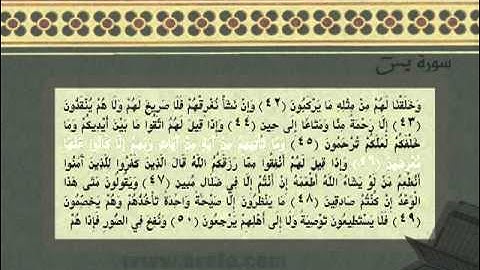 سورة يس
وَخَلَقْنَا لَهُمْ مِنْ مِثْلِهِ مَا يَرْكَبُونَ (٤٢) وَإِنْ نَشَأْ نُغْرِقْهُمْ فَلَا صَرِيخَ لَهُمْ وَلَا هُمْ يُنْقَذُونَ
(٤٣) إِلَّا رَحْمَةً مِنَّا وَمَتَاعًا إِلَى حِينٍ (٤٤) وَإِذَا قِيلَ لَهُمُ اتَّقُوا مَا بَيْنَ أَيْدِيكُمْ وَمَا
خَلْفَكُمْ لَعَلَّكُمْ تُرْحَمُونَ (٤٥) وَمَا تَأْتِيهِمْ مِنْ آيَةٍ مِنْ آيَاتِ رَبِّهِمْ إِلَّا كَانُوا عَنْهَا
مُعْرِضِينَ (٤٦) وَإِذَا قِيلَ لَهُمْ أَنْفِقُوا مِمَّا رَزَقَكُمُ اللَّهُ قَالَ الَّذِينَ كَفَرُوا لِلَّذِينَ آمَنُوا
أَنُطْعِمُ مَنْ لَوْ يَشَاءُ اللَّهُ أَطْعَمَهُ إِنْ أَنْتُمْ إِلَّا فِي ضَلَالٍ مُبِينٍ (٤٧) وَيَقُولُونَ مَتَى هَذَا
الْوَعْدُ إِنْ كُنْتُمْ صَادِقِينَ (٤٨) مَا يَنْظُرُونَ إِلَّا صَيْحَةً وَاحِدَةً تَأْخُذُهُمْ وَهُمْ يَخِصِّمُونَ
(٤٩) فَلَا يَسْتَطِيعُونَ تَوْصِيَةً وَلَا إِلَى أَهْلِهِمْ يَرْجِعُونَ (٥٠) وَنُفِخَ فِي الصُّورِ فَإِذَا هُمْ